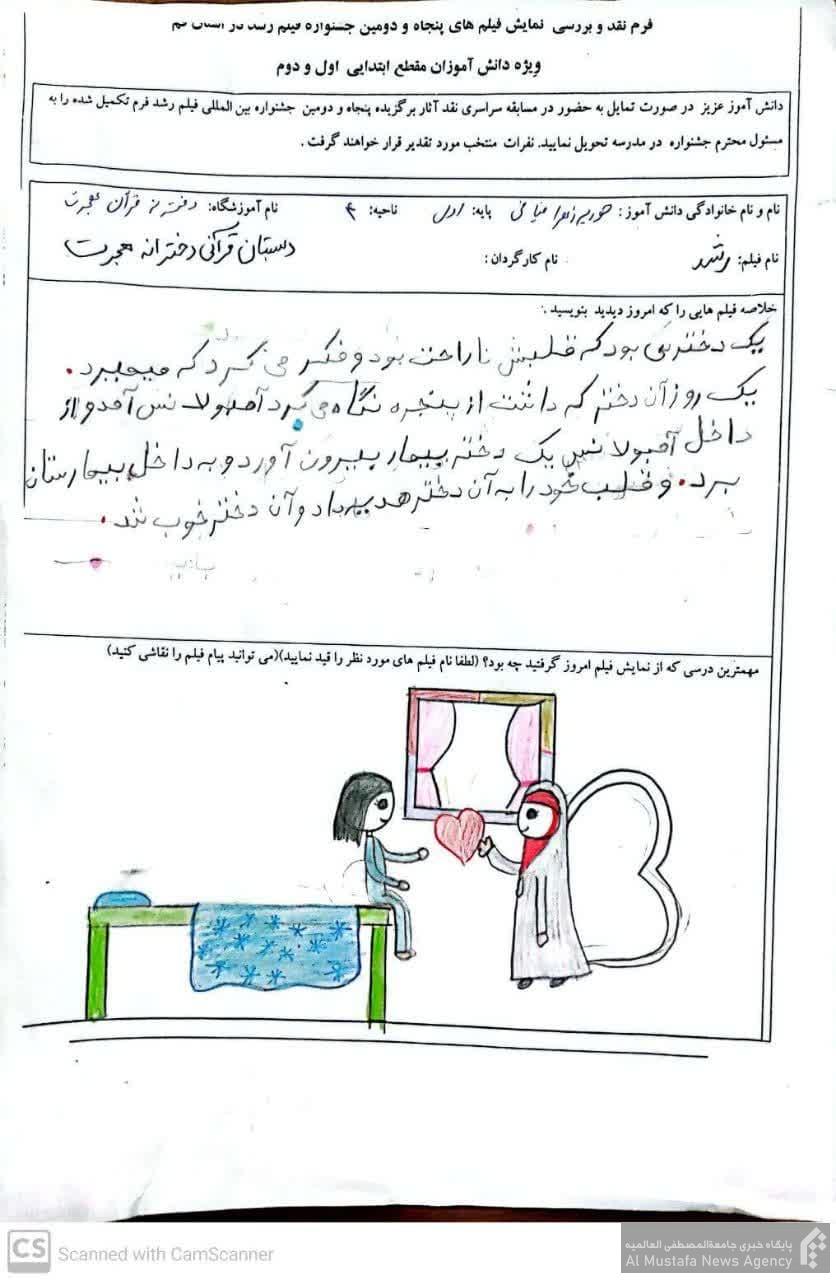 فرم نقد و بررسی نمایش فیلم های پنجاه و دومین جشنواره فیلم رشد در استان قم
ویژه دانش آموزان مقطع ابتدایی اول و دوم
دانش آموز عزیز در صورت تمایل به حضور در مسابقه سراسری نقد آثار برگزیده پنجاه و دومین جشنواره بین المللی فیلم رشد فرم تکمیل شده را به
مسئول محترم جشنواره در مدرسه تحویل نمایید. نفرات منتخب مورد تقدیر قرار خواهند گرفت .
نام و نام خانوادگی دانش آموز : حوریه زهرا پایه: اول ناحیه: ۴ نام آموزشگاه: دخترانه قرآن هجرت
نام فیلم: رشد نام کارگردان : دبستان قرآنی دخترانه هجرت
خلاصه فیلم هایی را که امروز دیدید بنویسید .
یک دختری بود که قلبش ناراحت بود و فکر می کرد که میمیرد.
یک روز آن دختر که داشت از پنجره نگاه می کرد آمبولانس آمد و از
داخل آمبولانس یک دختر بیمار بیرون آورد و به داخل بیمارستان
برد. و قلب خود را به آن دختر هدیه داد و آن دختر خوب شد.
مهمترین درسی که از نمایش فیلم امروز گرفتید چه بود؟ (لطفا نام فیلم های مورد نظر را قید نمایید)(می توانید پیام فیلم را نقاشی کنید)
CS Scanned with CamScanner
پایگاه خبری جامعةالمصطفی العالمیه
Al Mustafa News Agency